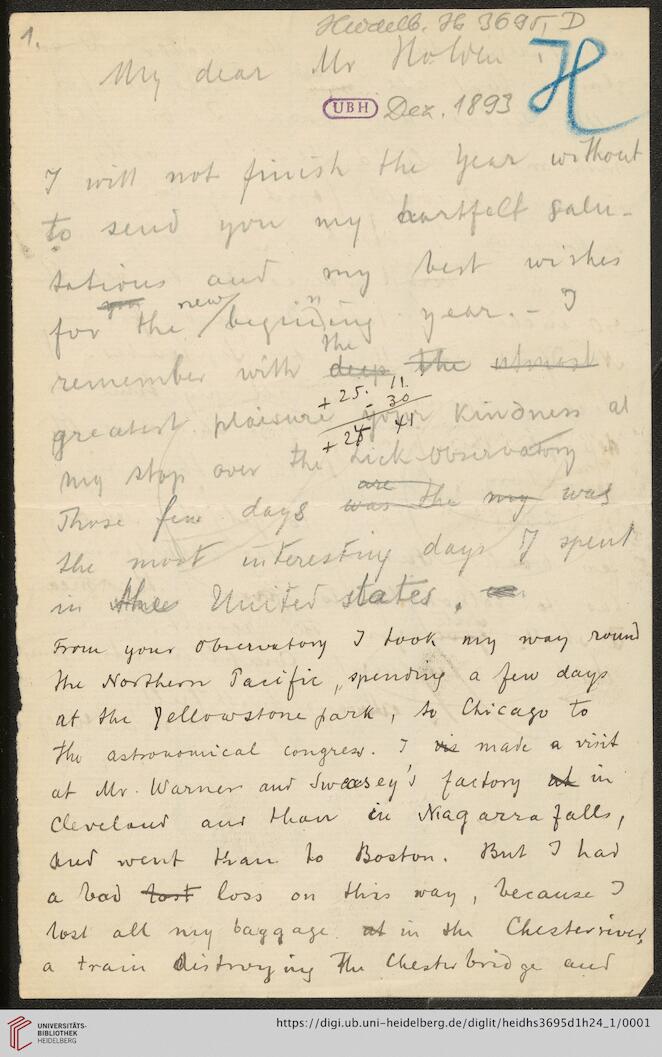 1.
Heidelb. Hs 3695, D
My dear Mr Holden !
H
UBH Dez. 1893
I will not finish the year without
to send you my heartfelt salu-
tations and my best wishes
for the new beginning year. - I
remember with the deep the utmost
greatest plaisure your kindness at
+ 25. 11.
- 30
+ 24 41
my stop over the Lick-Observatory
are
Those few days was the my was
the most interesting days I spent
in the United states.
From your Observatory I took my way round
the Northern Pacific, spending a few days
at the Yellowstone park, to Chicago to
the astronomical congress. I vis made a visit
at Mr. Warner and Swasey's factory at in
Cleveland and than in Niagarra falls,
and went than to Boston. But I had
a bad lost loss on this way, because I
lost all my baggage at in the Chesterriver,
a train distroying the Chesterbridge and
UNIVERSITÄTS-
BIBLIOTHEK
HEIDELBERG
https://digi.ub.uni-heidelberg.de/diglit/heidhs3695d1h24_1/0001